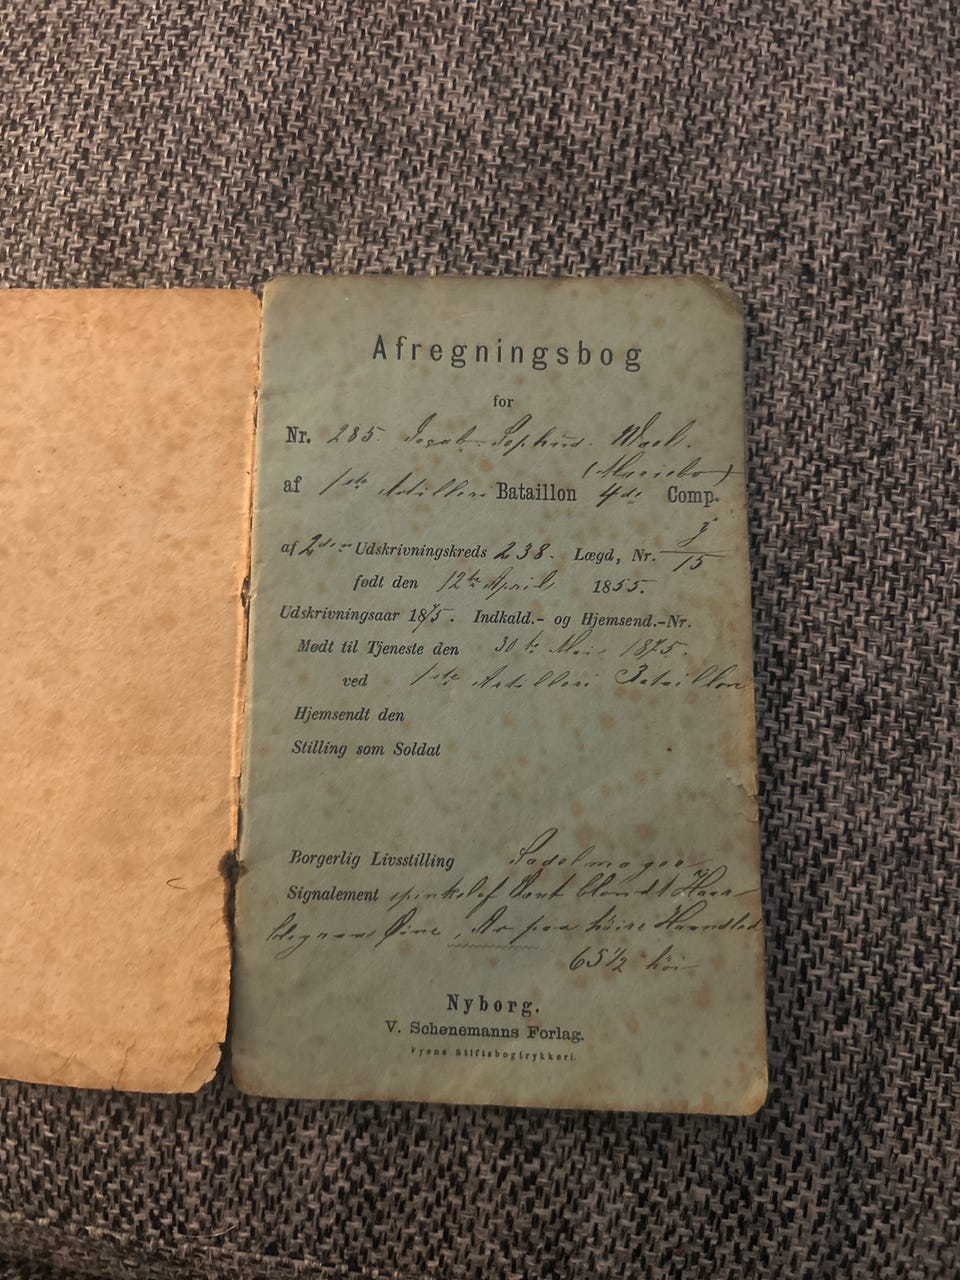 Afregningsbog
for
Nr. 285. Jacob Sophus. Wael.
(Maribo)
af 1ste Artilleri Bataillon 4de Comp.
af 2den Udskrivningskreds 238. Lægd, Nr. 15
født den 12te April 1855.
Udskrivningsaar 1875. Indkald.- og Hjemsend.-Nr.
Mødt til Tjeneste den 30te Mai 1875.
ved 1ste Artilleri Bataillon
Hjemsendt den
Stilling som Soldat
Borgerlig Livsstilling Sadelmager
Signalement spinkel af Vext blondt Haar
blegraa Øine, Ar paa høire Haandled
65 1/2" høi
Nyborg.
V. Schønemanns Forlag.
Fyens Stiftsbogtrykkeri.